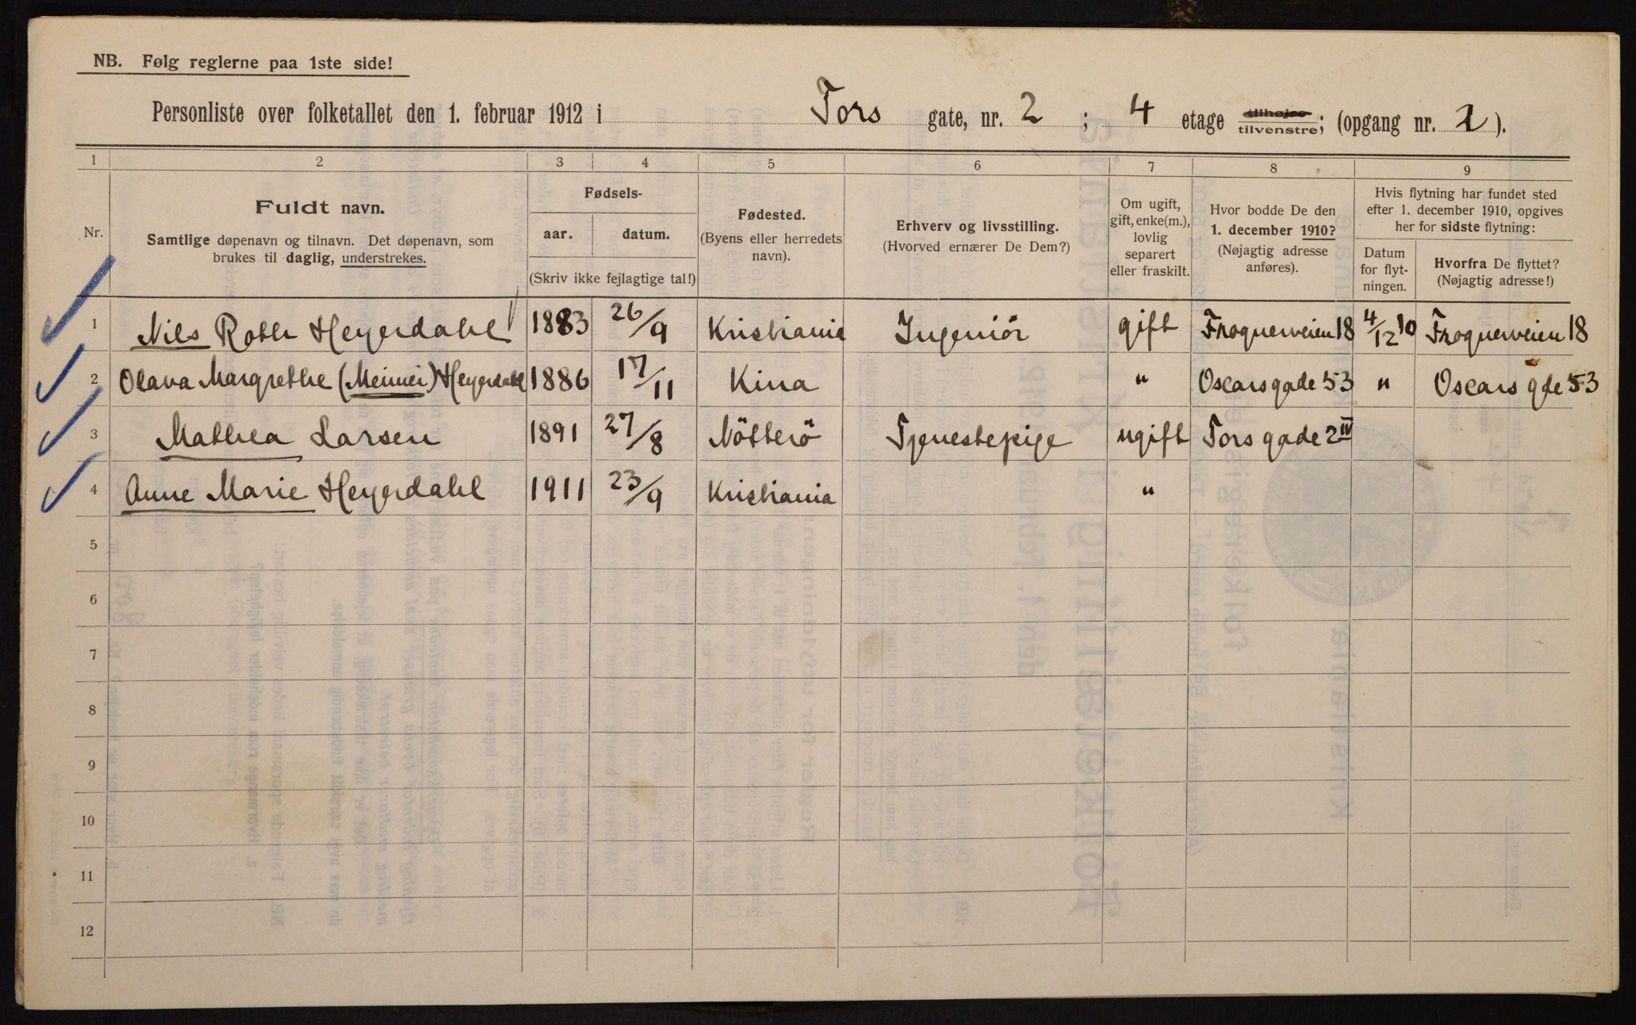 NB. Følg reglerne paa 1ste side!
Personliste over folketallet den 1. februar 1912 i Tors gate, nr. 2 ; 4 etage tilhøjre tilvenstre; (opgang nr. 1 ).
1 2 3 4 5 6 7 8 9
Nr.
Fuldt navn.
Samtlige døpenavn og tilnavn. Det døpenavn, som
brukes til daglig, understrekes.
Fødsels-
aar. datum.
(Skriv ikke fejlagtige tal!)
Fødested.
(Byens eller herredets
navn).
Erhverv og livsstilling.
(Hvorved ernærer De Dem?)
Om ugift,
gift, enke(m.),
lovlig
separert
eller fraskilt.
Hvor bodde De den
1. december 1910?
(Nøjagtig adresse
anføres).
Hvis flytning har fundet sted
efter 1. december 1910, opgives
her for sidste flytning:
Datum
for flyt-
ningen.
Hvorfra De flyttet?
(Nøjagtig adresse!)
1 Nils Roth Heyerdahl 1883 26/9 Kristiania Ingeniör gift Frognerveien 18 4/12 10 Frognerveien 18
2 Olava Margrethe (Meimei) Heyerdahl 1886 17/11 Kina " Oscarsgade 53 " Oscars gde 53
3 Mathea Larsen 1891 27/8 Nötterö Tjenestepige ugift Torsgade 2 IV
4 Anne Marie Heyerdahl 1911 23/9 Kristiania "
5
6
7
8
9
10
11
12